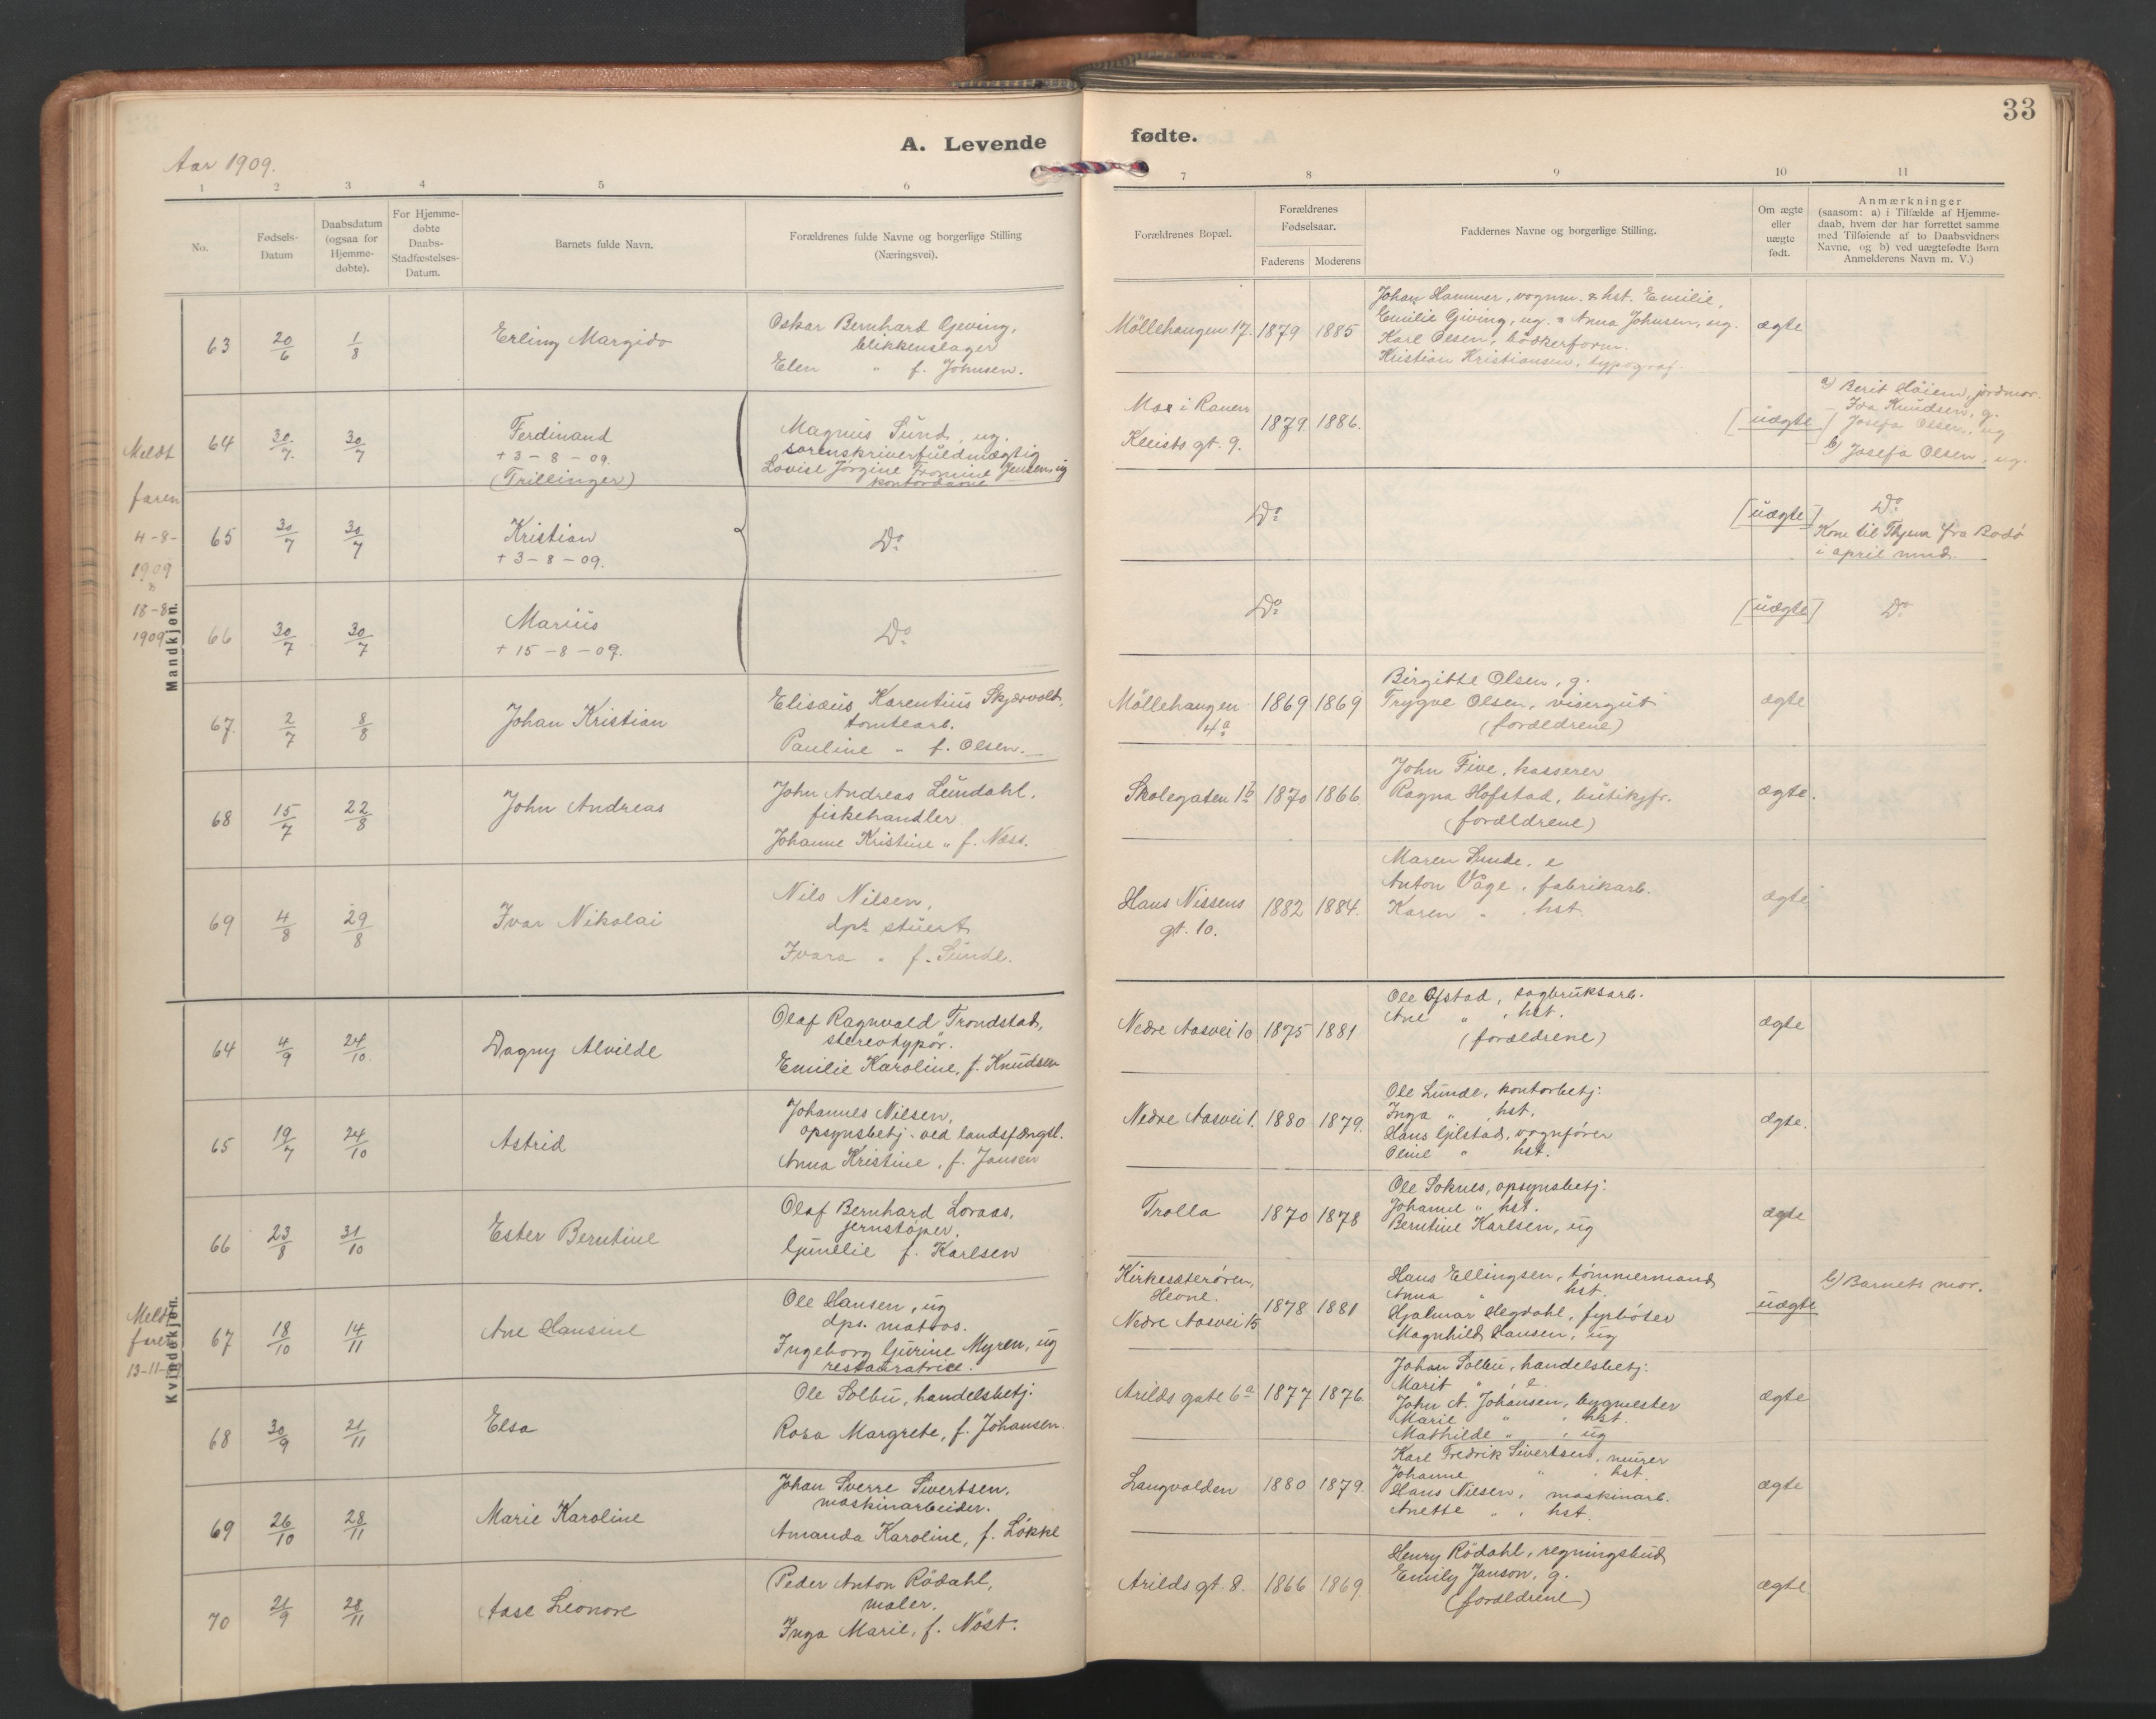 33
A. Levende fødte.
Aar 1909.
1 2 3 4 5 6 7 8 9 10 11
No.
Fødsels-
Datum
Daabsdatum
(ogsaa for
Hjemme-
døbte).
For Hjemme-
døbte
Daabs-
Stadfæstelses-
Datum.
Barnets fulde Navn.
Forældrenes fulde Navne og borgerlige Stilling
(Næringsvei).
Forældrenes Bopæl.
Forældrenes
Fødselsaar.
Faderens Moderens
Faddernes Navne og borgerlige Stilling.
Om ægte
eller
uægte
født.
Anmærkninger
(saasom: a) i Tilfælde af Hjemme-
daab, hvem der har forrettet samme
med Tilføiende af to Daabsvidners
Navne, og b) ved uægtefødte Børn
Anmelderens Navn m. V.)
Mandkjøn.
63 20/6 1/8
Erling Margido
Oskar Bernhard Gjeving,
blikkenslager
Elen " f. Johnsen.
Möllehaugen 17. 1879 1885
Johan Hammer, vognm. & hst. Emilie,
Emilie Gjiving, ug. & Anna Johnsen, ug.
Karl Olsen, bödkerform.
Kristian Kristiansen, typograf.
ægte
Meldt
faren
4-8-
1909
&
18-8
1909
64 30/7. 30/7
Ferdinand
+ 3-8-09.
(Trillinger)
Magnus Sund, ug.
sorenskriverfuldmægtig
Lovise Jörgine Fromine Jensen, ug
kontordame
Mo i Ranen
Kleists gt. 9.
1879. 1886.
[uægte]
a) Berit Höiem, jordmor.
- Ida Knudsen, g.
Josefa Olsen, ug
b) Josefa Olsen, ug.
65 30/7 30/7
Kristian
+ 3-8-09.
Do
Do
[uægte]
Do
Kom til Thjem fra Bodö
i april mnd.
66 30/7 30/7
Marius
+ 15-8-09.
Do
Do
[uægte]
Do
67. 2/7 8/8
Johan Kristian
Elisæus Karentius Skjærvold,
tomtearb.
Pauline " f. Olsen.
Möllehaugen
4a
1869 1869
Birgitte Olsen, g.
Trygve Olsen, visergut
(forældrene)
ægte
68 15/7 22/8
John Andreas
John Andreas Lundahl,
fiskehandler
Johanne Kristine " f. Næss.
Skolegaten 1b 1870 1866.
John Five, kasserer
Ragna Hofstad, butikjfr.
(forældrene)
ægte.
69 4/8 29/8
Ivar Nikolai
Nils Nilsen,
dpsk. stuert
Ivara " f. Sunde.
Hans Nissens
gt. 10.
1882 1884.
Maren Sunde, e
Anton Vage, fabrikarb.
Karen " , hst.
ægte
Kvindekjøn.
64 4/9 24/10.
Dagny Alvilde
Olaf Ragnvald Trondstad,
stereotypör.
Emilie Karoline, f. Knudsen
Nedre Aasvei 10 1875 1881
Ole Ofstad, sagbruksarb.
Ane " , hst.
(forældrene)
ægte
65 19/7 24/10
Astrid
Johannes Nilsen,
opsynsbetj. ved landsfængsl.
Anna Kristine, f. Jansen
Nedre Aasvei 1. 1880 1879.
Ole Lunde, kontorbetj:
Inga " hst.
Hans Gilstad, vognförer
Oline " hst.
ægte.
66 23/8 31/10
Ester Berntine
Olaf Bernhard Loraas,
jernstöper,
Gunelie f. Karlsen
Trolla 1870 1878
Ole Soknes, opsynsbetj:
Johanne " hst.
Berntine Karlsen, ug
ægte
Meldt
faren
13-11-
67 18/10 14/11
Ane Hansine
Ole Hansen, ug
dps. matros.
Ingeborg Gurine Myren, ug
restauratrice.
Kirkesæterören,
Hevne.
Nedre Aasvei 15
1878 1881
Hans Ellingsen, tömmermand
Anna " hst.
Hjalmar Hegdahl, fyrböter
Magnhild Hansen, ug
uægte
b) Barnets mor.
68 30/9 21/11
Elsa
Ole Solbu, handelsbetj:
Rosa Margrete, f. Johansen.
Arilds gate 6a 1877 1876.
Johan Solbu, handelsbetj:
Marit " , e.
John A. Johansen, bygmester
Marie " , hst.
Mathilde " , ug
ægte
69 26/10 28/11
Marie Karoline
Johan Sverre Sivertsen,
maskinarbeider.
Amanda Karoline, f. Lökke
Langvolden 1880 1879.
Karl Fredrik Sivertsen, murer
Johanne " , hst.
Hans Nilsen, maskinarb.
Anette " , hst.
ægte
70 21/9 28/11
Aase Leonore
Peder Anton Rödahl,
maler.
Inga Marie, f. Nöst.
Arilds gt. 8. 1866 1869.
Henry Rödahl, regningsbud
Emily Janson, g.
(forældrene)
ægte